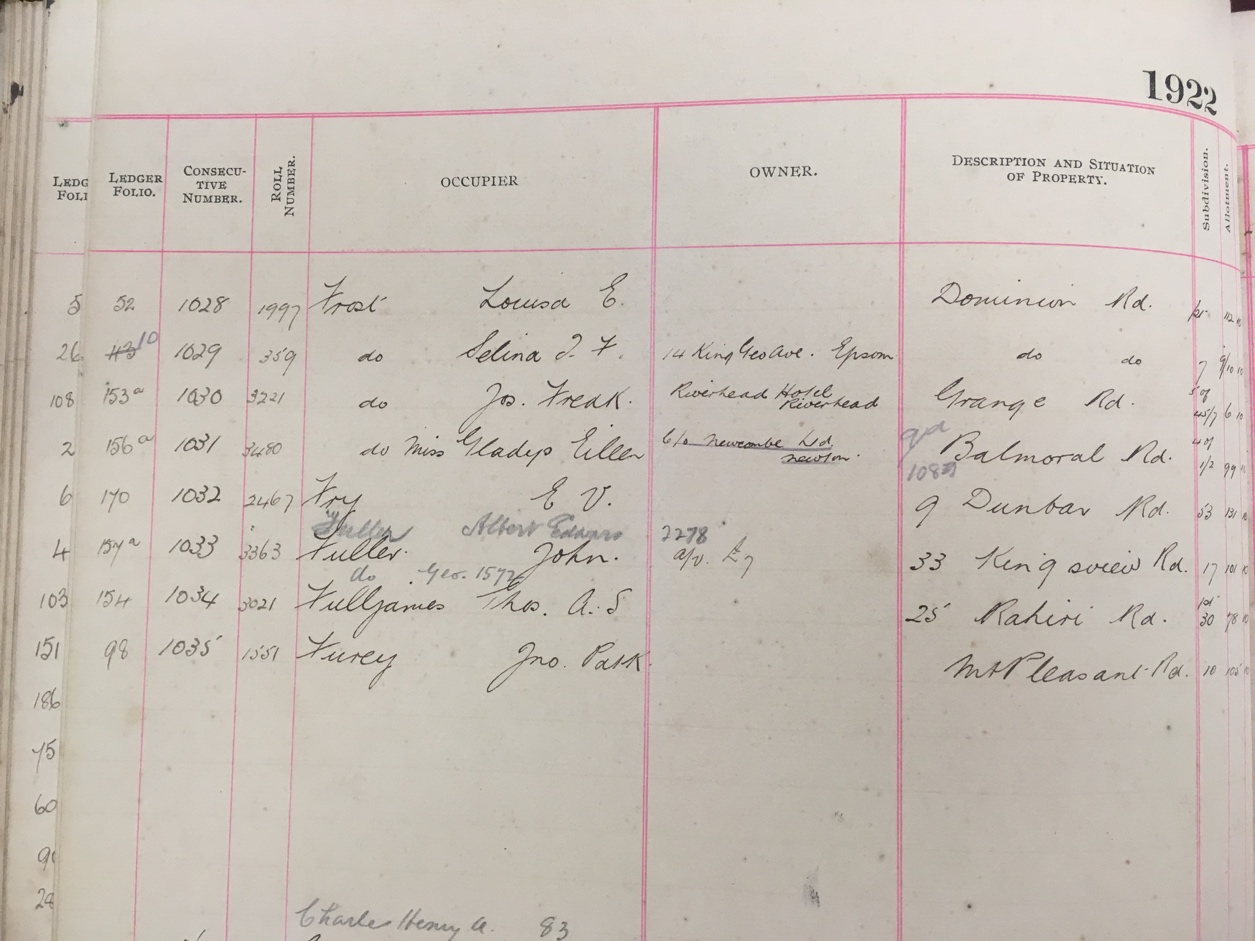 1922
LEDG FOLI LEDGER FOLIO. CONSECU-TIVE NUMBER. ROLL NUMBER. OCCUPIER OWNER. DESCRIPTION AND SITUATION OF PROPERTY. Subdivision. Allotment.
5 52 1028 1997 Frost Louisa E. Dominion Rd.
26 10 1029 359 do Selina J. F. 14 King Geo Ave. Epsom do do 7
108 153a 1030 3221 do Jos. Freak. Riverhead Hotel Riverhead Grange Rd. 6
2 156a 1031 3480 do Miss Gladys Eillen c/o Newcombe Ltd newton. Balmoral Rd. 1/2 99
6 170 1032 2467 Fry E V. 9 Dunbar Rd. 53 131
Fuller Albert Edward 2278
4 157a 1033 3363 Fuller. John. a/v. £7 33 Kingsview Rd. 17 101
do Geo. 1572
103 154 1034 3021 Fulljames Thos. A. S 25 Rahiri Rd. 30 78
151 98 1035 1551 Furey Jno. Patk. Mt Pleasant Rd. 10 105
186
75
60
90
28
Charles Henry A. 83